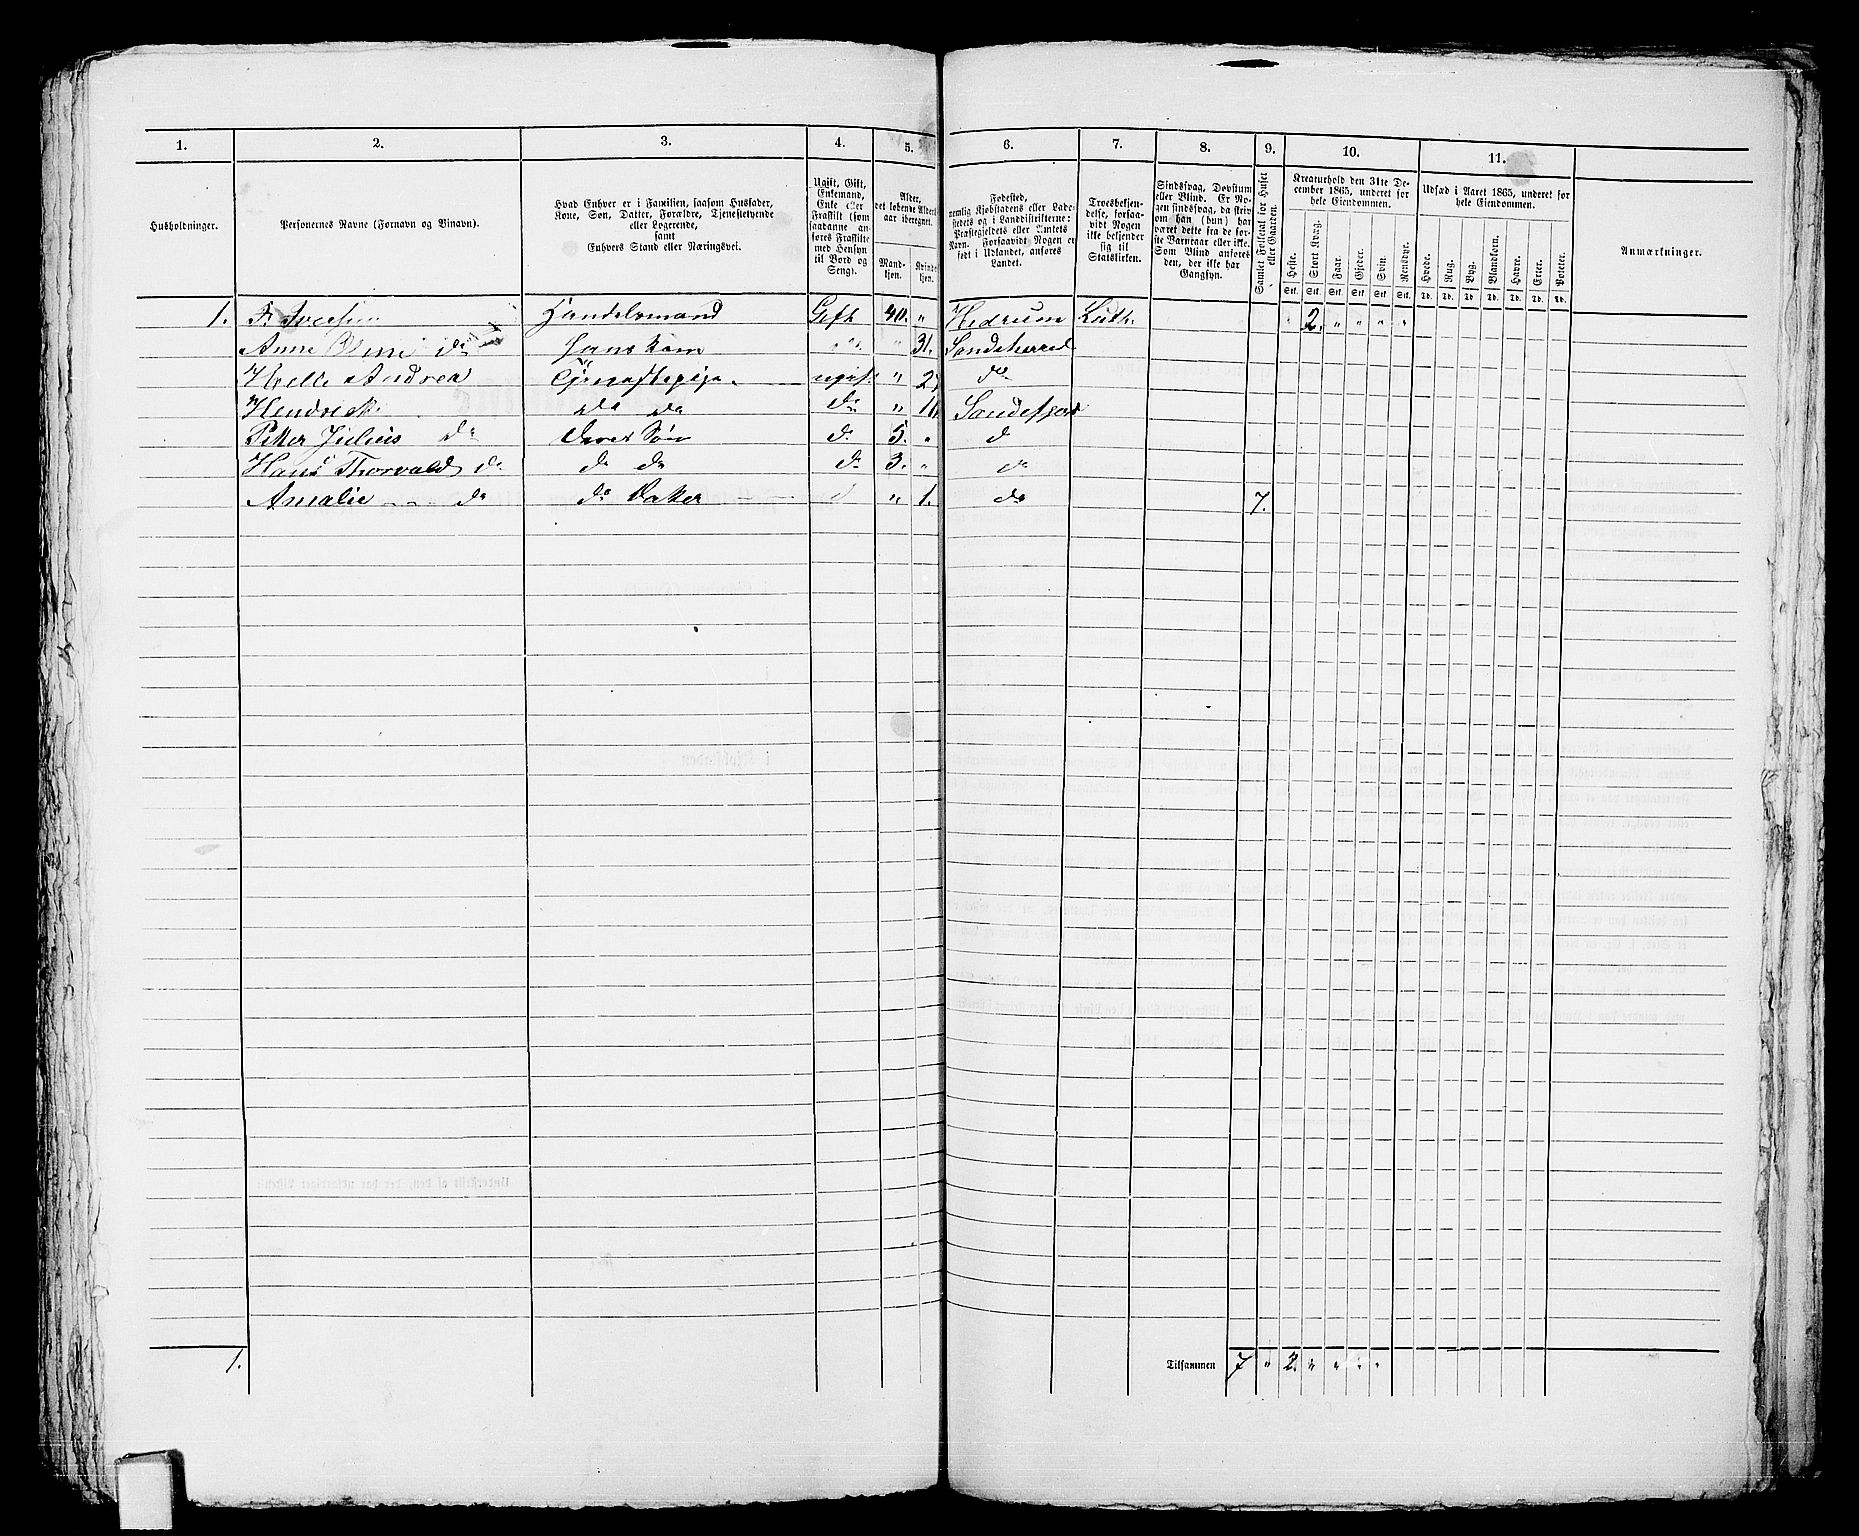 1. 2. 3. 4. 5. 6. 7. 8. 9. 10. 11.
Husholdninger.
Personernes Navne (Fornavn og Binavn).
Hvad Enhver er i Familien, saasom Husfader,
Kone, Søn, Datter, Forældre, Tjenestetyende
eller Logerende,
samt
Enhvers Stand eller Næringsvei.
Ugift, Gift,
Enkemand,
Enke eller
Fraskilt (som
saadanne an-
føres Fraskilte
med Hensyn
til Bord og
Seng).
Alder,
det løbende Alders-
aar iberegnet.
Mand-
kjøn.
Kvinde-
kjøn.
Fødested,
nemlig Kjøbstadens eller Lade-
stedets og i Landdistrikterne:
Præstegjeldets eller Amtets
Navn. Forsaavidt Nogen er
født i Udlandet, anføres
Landet.
Troesbekjen-
delse, forsaa-
vidt Nogen
ikke bekjender
sig til
Statskirken.
Sindssvag, Døvstum
eller Blind. Er No-
gen sindssvag, da skriv
om han (hun) har
været dette fra de før-
ste Barneaar eller ikke.
Som Blind anføres
den, der ikke har
Gangsyn.
Samlet Folketal for Huset
eller Gaarden.
Kreaturhold den 31te De-
cember 1865, underet for
hele Eiendommen.
Heste. Stort Kvæg. Faar. Gjeder. Svin. Rensdyr.
Stk. Stk. Stk. Stk. Stk. Stk.
Udsæd i Aaret 1865, underet for
hele Eiendommen.
Hvede. Rug. Byg. Blandkorn. Havre. Erter. Poteter.
Td. Td. Td. Td. Td. Td. Td.
Anmærkninger.
1. Handelsmand Gift 40. " Hedrum Luth. " 2. " " " "
Anne do Hans Kone do " 31. Sandeherred
Helle Andrea ugift " do
do do do " Sandefjord
Petter Julius do Deres Søn do 5. " d
Hans Thorvald do do do do 3. " do
Amalie do do Datter d " 1. do 7.
1. Tilsammen 7 " 2. " " " "